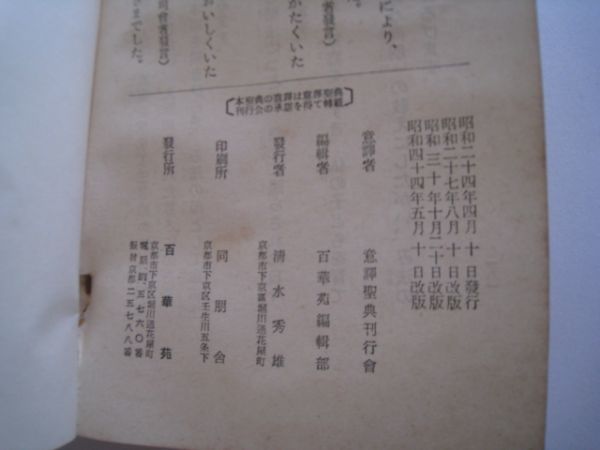 により、
者發言)
がたくいた
司會者發言)
おいしくいた
きました。
本聖典の意譯は意譯聖典
刊行会の承認を得て轉載
昭和二十四年四月十日發行
昭和二十七年八月十日改版
昭和三十年十月二十日改版
昭和四十四年五月十日改版
意譯者 意譯聖典刊行會
編輯者 百華苑編輯部
發行者 京都市下京區堀川通花屋町 清水秀雄
印刷所 京都市下京区壬生川五条下 同朋舎
發行所 京都市下京区堀川通花屋町 百華苑
振替京都二五七八八番